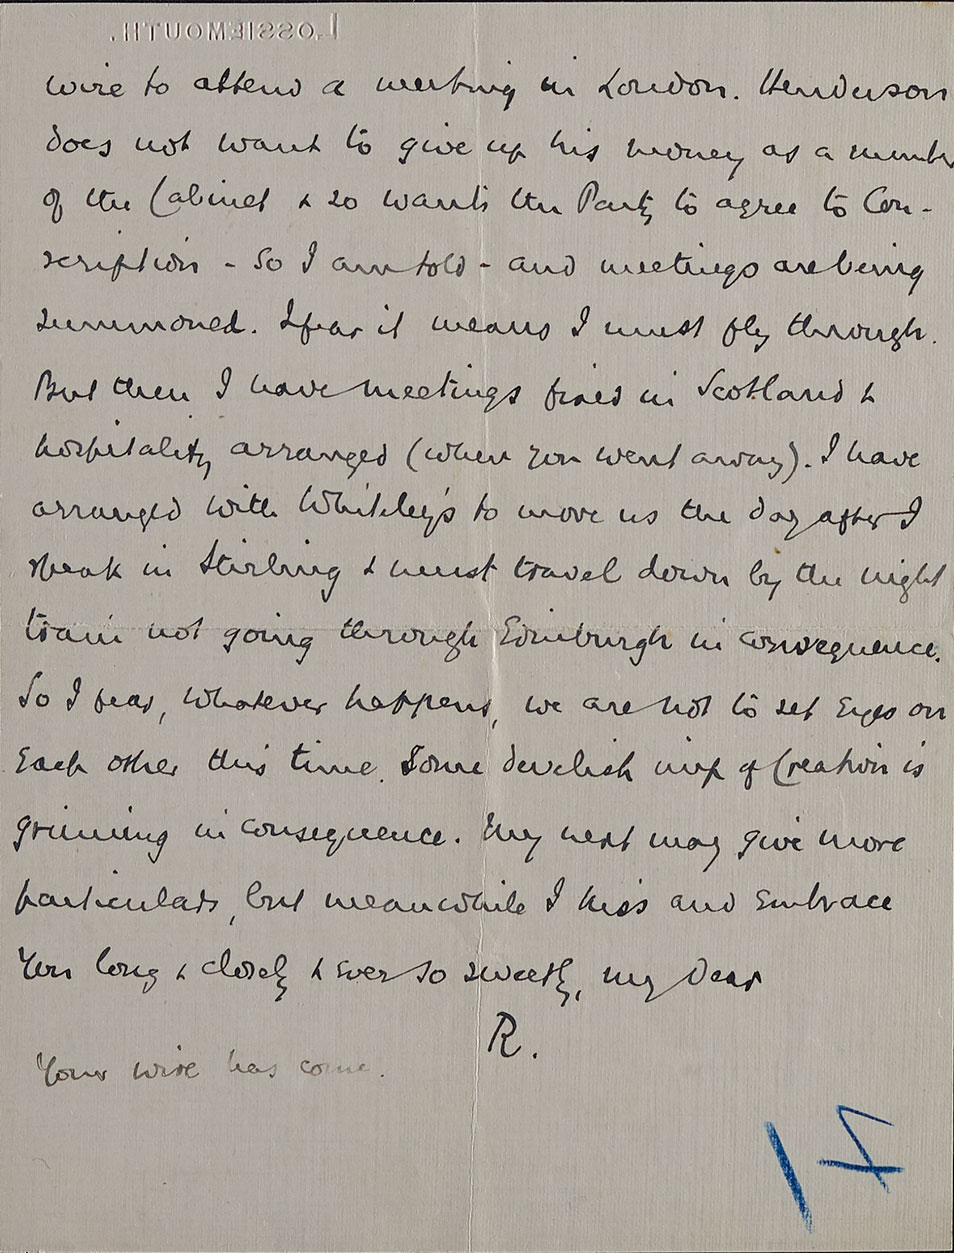 LOSSIEMOUTH.
wire to attend a meeting in London. Henderson
does not want to give up his money as a member
of the Cabinet & so wants the Party to agree to Con-
scription - So I am told - and meetings are being
summoned. I fear it means I must fly through.
But then I have meetings fixed in Scotland &
hospitality arranged (when you went away). I have
arranged with Whiteley's to move us the day after I
speak in Stirling & must travel down by the night
train not going through Edinburgh in consequence.
So I fear, whatever happens, we are not to set Eyes on
Each other this time. Some develish imp of Creation is
grinning in consequence. My next may give more
particulars, but meanwhile I kiss and Embrace
You long & closely & Ever so sweetly, my Dear
R.
Your wire has come.
17